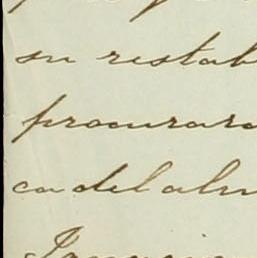 su restab
procurara
ca del alm